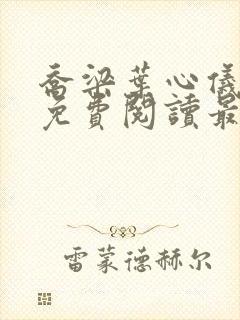 喬梁葉心儀
免費閱讀最
雷蒙德赫尔